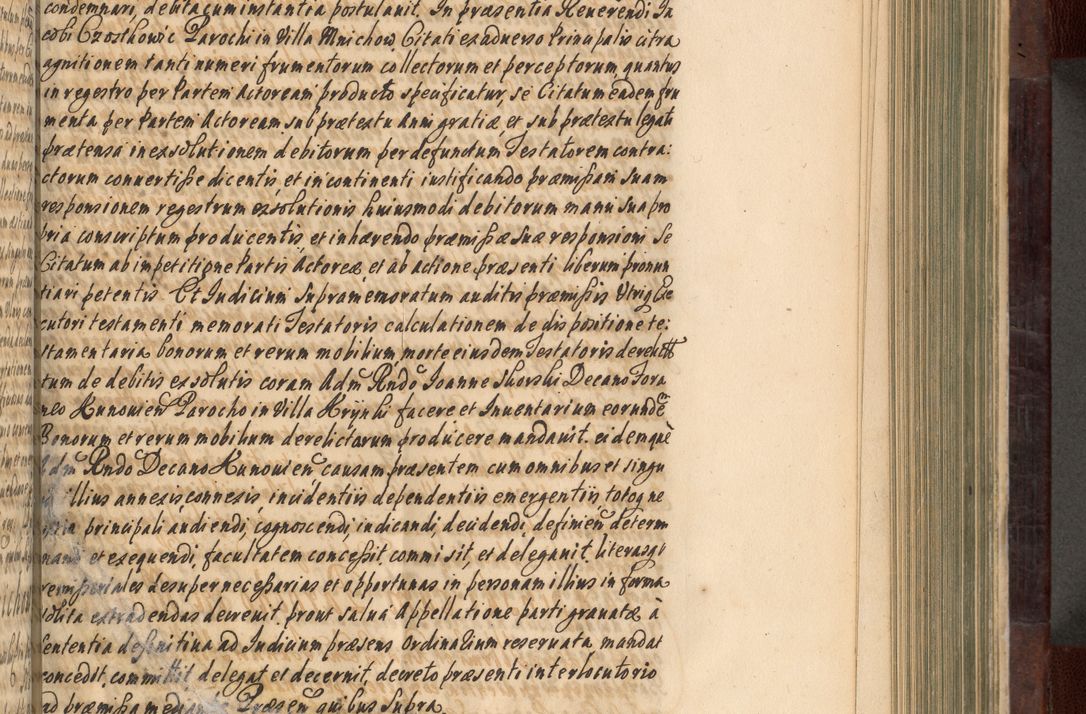 condemnari, debita cum instantia postulavit. In præsentia Reverendi Ja
cobi Czosthowic Parochi in Villa Mnichow Citati ex adverso Principalis citra
agnitionem tanti numeri frumentorum collectorum et perceptorum, quantus
in regestro per Partem Actoream producto specificatur, se Citatum eadem fru
menta per Partem Actoream sub prætextu Anni gratiæ, et sub prætextu legati
prætensa in exsolutionem debitorum per defunctum Testatorem contra:
ctorum convertisse dicentis, et in continenti iustificando præmissam suam
responsionem regestrum exsolutionis huiusmodi debitorum manu sua pro
pria conscriptum producentis, et inhærendo præmissæ suæ responsioni se
Citatum ab impetitione Partis Actoreæ, et ab actione præsenti liberum pronun
tiari petentis. Et Iudicium supramemoratum auditis præmissis Utriq Exe
cutori testamenti memorati Testatoris calculationem de dispositione te:
stamentaria bonorum et rerum mobilium, morte eiusdem Testatoris derelict
tum de debitis exsolutis coram Adm Rndo Joanne Skorski Decano Fora
neo Kunovien Parocho in Villa Krynki facere et Inventarium eorundē
Bonorum et rerum mobilium derelictorum producere mandavit. eidemque
Adm Rndo Decano Kunovien causam præsentem cum omnibus et singu
illius annexis, connexis, incidentiis dependentiis emergentiis, totoq ne
principali audiendi, cognoscendi, iudicandi, decidendi, definien determ
nan et exequendi, facultatem concessit commisit, et delegavit. literasq
remissoriales desuper necessarias et opportunas in personam illius in forma
solita extradendas decrevit. prout salva Appellatione parti gravatæ à
sententia definitiva ad Iudicium præsens Ordinarium reservata mandat
concedit, committit, delegat et decernit, decreto præsenti interlocutorio
ad præmissa mediante Præsen quibus supra